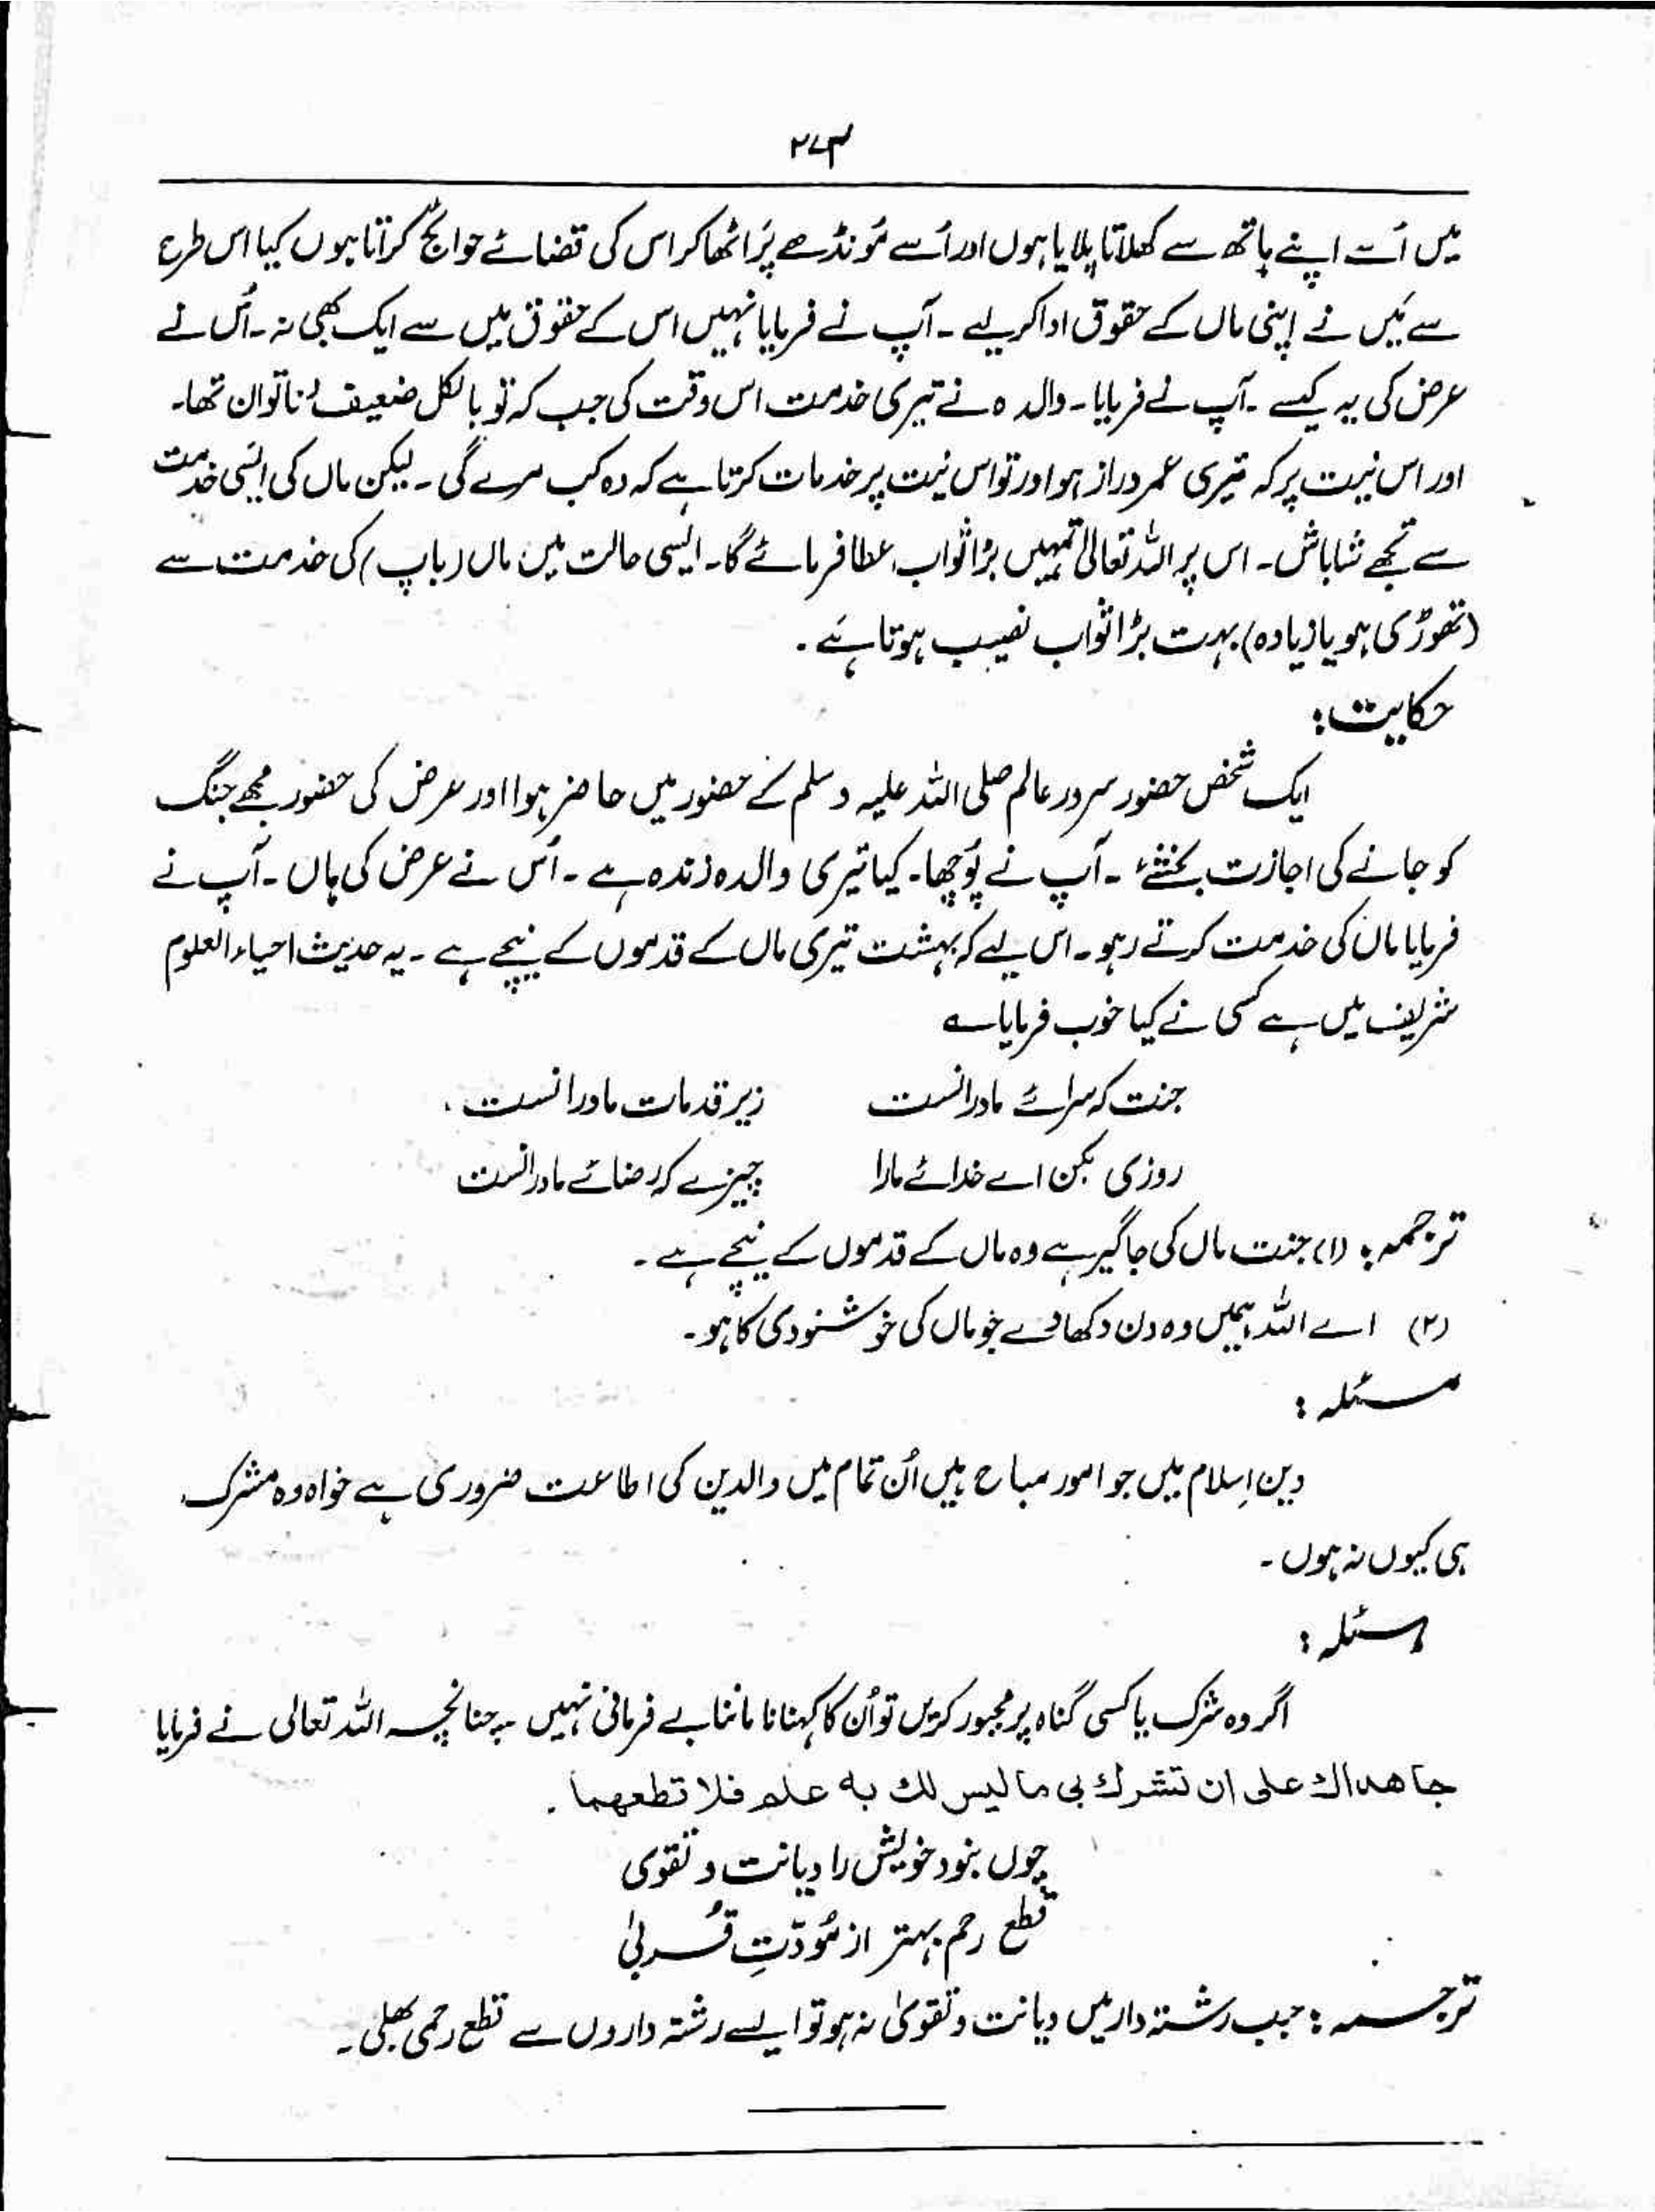 ۲۷۴
میں اُسے اپنے ہاتھ سے کھلاتا پلایا ہوں اور اُسے مُونڈھے پَر اٹھا کر اس کی قضائے حوائج کراتا ہوں کیا اس طرح
سے مَیں نے اپنی ماں کے حقوق ادا کر لیے ۔ آپ نے فرمایا نہیں اس کے حقوق میں سے ایک بھی نہ ۔ اُس نے
عرض کی یہ کیسے ۔ آپ نے فرمایا ۔ والدہ نے تیری خدمت اس وقت کی جب کہ تو بالکل ضعیف و ناتواں تھا۔
اور اس نیت پر کہ تیری عمر دراز ہو اور تو اس نیت پر خدمات کرتا ہے کہ وہ کب مرے گی ۔ لیکن ماں کی ایسی خدمت
سے تجھے شاباش ۔ اس پر اللہ تعالیٰ تمہیں بڑا ثواب عطا فرمائے گا۔ ایسی حالت میں ماں (باپ) کی خدمت سے
(تھوڑی ہو یا زیادہ) بہت بڑا ثواب نصیب ہوتا ہَے ۔
حکایت :
ایک شخص حضور سرور عالم صلی اللہ علیہ وسلم کے حضور میں حاضر ہوا اور عرض کی حضور مجھے جنگ
کو جانے کی اجازت بخشئے ۔ آپ نے پُوچھا۔ کیا تیری والدہ زندہ ہے ۔ اُس نے عرض کی ہاں ۔ آپ نے
فرمایا ماں کی خدمت کرتے رہو ۔ اس لیے کہ بہشت تیری ماں کے قدموں کے نیچے ہے ۔ یہ حدیث احیاء العلوم
شریف میں ہے کسی نے کیا خوب فرمایا ؎
جنت کہ سرائے مادرانست زیر قدمات مادرانست .
روزی بکن اے خدائے مارا چیزے کہ رضائے مادرانست
ترجمہ : (۱) جنت ماں کی جاگیر ہے وہ ماں کے قدموں کے نیچے ہے ۔
(۲) اے اللہ ہمیں وہ دن دکھا دے جو ماں کی خوشنودی کا ہو ۔
مسئلہ :
دین اِسلام میں جو امور مباح ہیں اُن تمام میں والدین کی اطاعت ضروری ہے خواہ وہ مشرک
ہی کیوں نہ ہوں ۔
مسئلہ :
اگر وہ شرک یا کسی گناہ پر مجبور کریں تو اُن کا کہنا نا ماننا بے فرمانی نہیں ۔ چنانچہ اللہ تعالی نے فرمایا
جاهداك على ان تشرك بى ما ليس لك به علم فلا تطعهما .
چوں بنود خویش را دیانت و تقوی
قطع رحم بہتر از مُودّتِ قُربیٰ
ترجمہ : جب رشتہ دار میں دیانت و تقویٰ نہ ہو تو ایسے رشتہ داروں سے قطع رحمی بھلی ۔